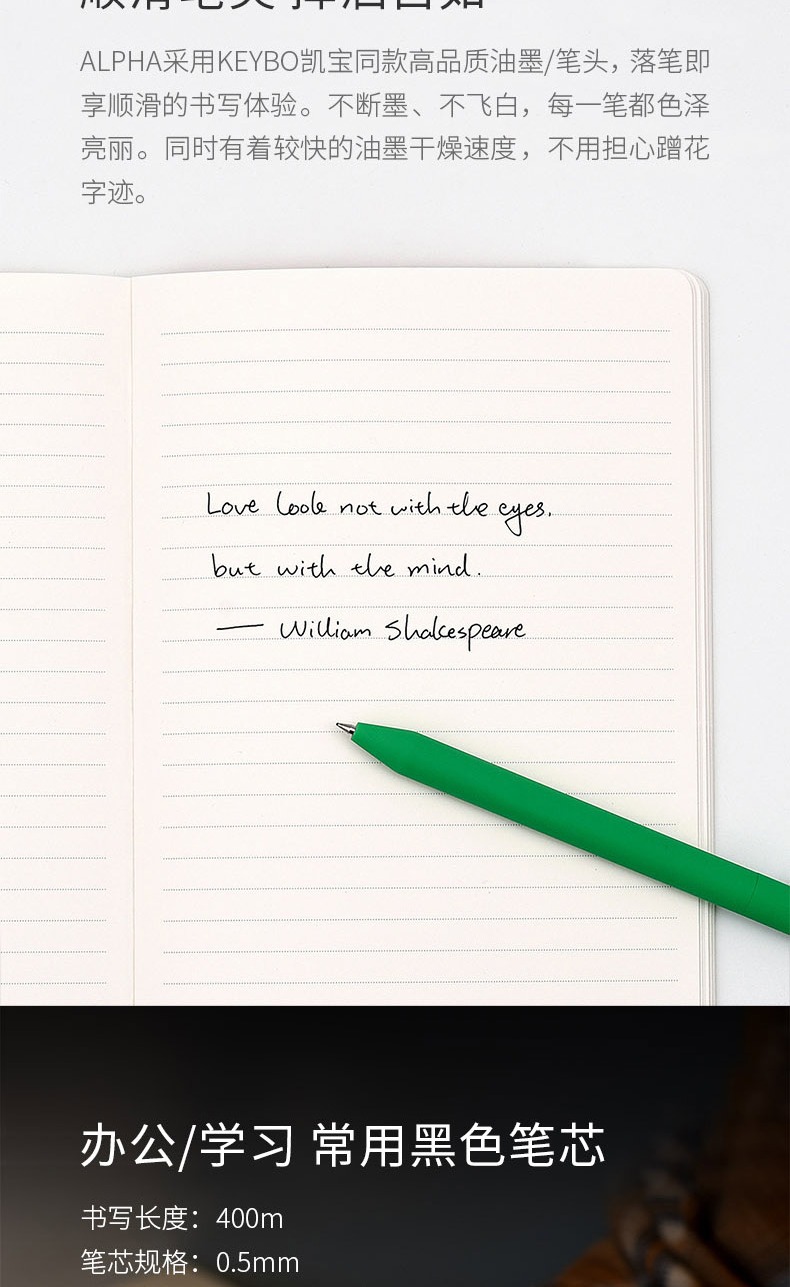 ALPHA采用KEYBO凯宝同款高品质油墨/笔头，落笔即
享顺滑的书写体验。不断墨、不飞白，每一笔都色泽
亮丽。同时有着较快的油墨干燥速度，不用担心蹭花
字迹。
Love look not with the eyes,
but with the mind.
— William Shakespeare
办公/学习 常用黑色笔芯
书写长度：400m
笔芯规格：0.5mm